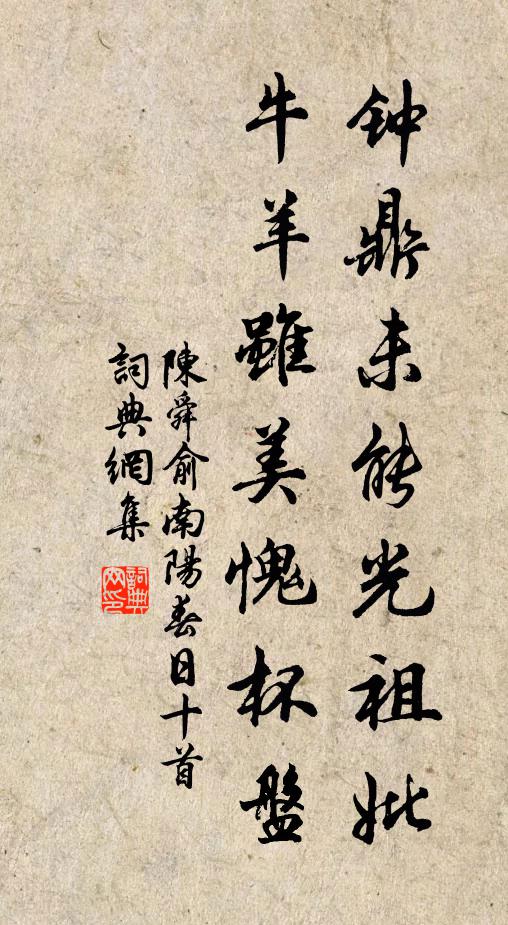 钟鼎未能光祖妣
牛羊雖美愧杯盤
陳舜俞南陽春日十首
詞典網集
詞典网印